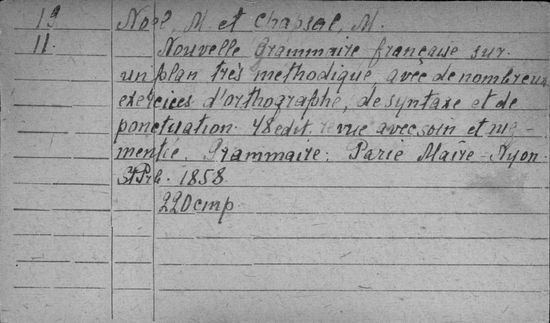 19 Noel, M et Chapsal, M.
11. Nouvelle grammaire française sur
un plan très méthodique, avec de nombreux
exercices d'orthographe, de syntaxe et de
ponctuation. 48 edit. revue avec soin et ug-
mentée. Grammaire. Paris Maire-Nyon.
1858.
220 стр.